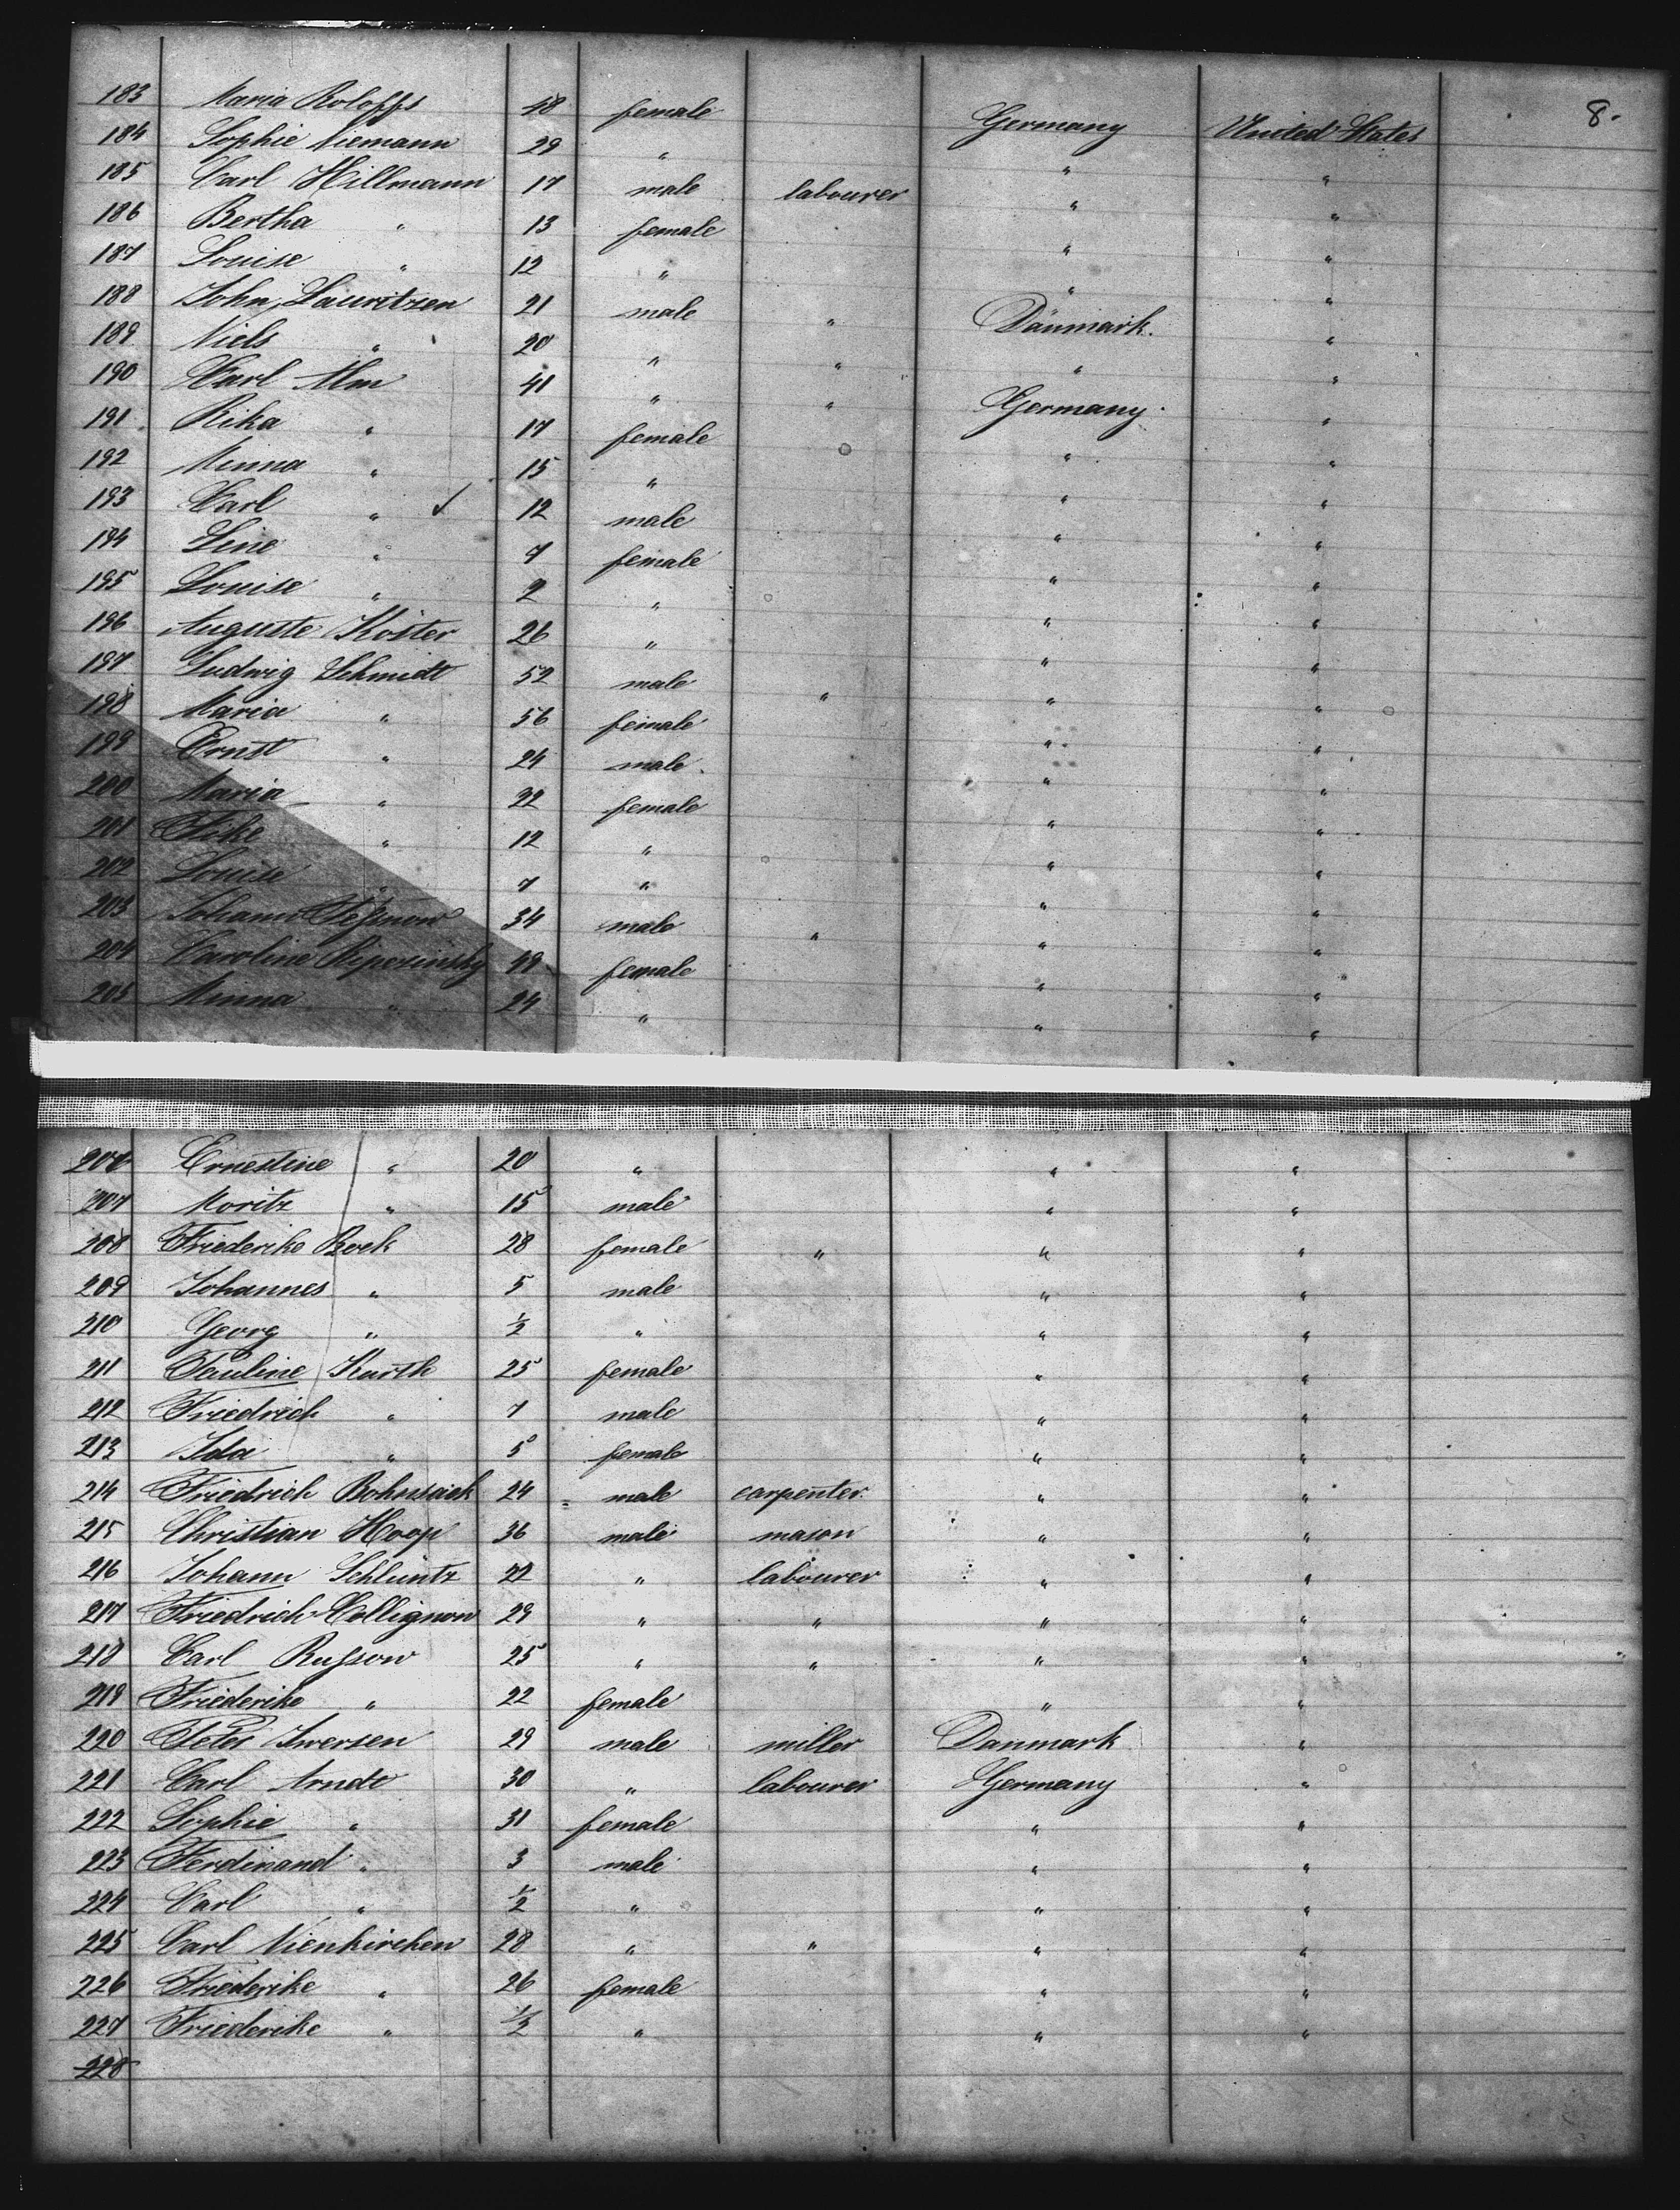 8.
183 Maria Roloffs 48 female Germany United States
184 Sophie Niemann 29 " " "
185 Carl Hillmann 17 male labourer " "
186 Bertha " 13 female " "
187 Louise " 12 " " "
188 John Lauritzen 21 male " Dänmark. "
189 Niels " 20 " " " "
190 Carl Alm 41 " " Germany. "
191 Rika " 17 female " "
192 Minna " 15 " " "
193 Carl " ✓ 12 male " "
194 Line " 7 female " "
195 Louise " 2 " " "
196 Auguste Köster 26 " " "
197 Ludwig Schmidt 52 male " " "
198 Maria " 56 female " "
199 Ernst " 24 male " "
200 Maria " 22 female " "
201 Fike " 12 " " "
202 Louise " 7 " " "
203 Johann Teßnow 34 male " " "
204 Caroline Riperinsky 49 female " "
205 Minna " 24 " " "
206 Ernestine " 20 " " "
207 Moritz " 15 male " "
208 Friederike Bock 28 female " " "
209 Johannes " 5 male " "
210 Georg " ½ " " "
211 Pauline Kurth 25 female " "
212 Friedrich " 7 male " "
213 Ida " 5 female " "
214 Friedrich Bohnsack 24 male carpenter " "
215 Christian Hoop 36 male mason " "
216 Johann Schlüntz 22 " labourer " "
217 Friedrich Collignon 29 " " " "
218 Carl Rußow 25 " " " "
219 Friederike " 22 female " "
220 Peter Iwersen 29 male miller Danmark "
221 Carl Arndt 30 " labourer Germany "
222 Sophie " 31 female " "
223 Ferdinand " 3 male " "
224 Carl " ½ " " "
225 Carl Nienkirchen 28 " " " "
226 Friederike " 26 female " "
227 Friederike " ½ " " "
228